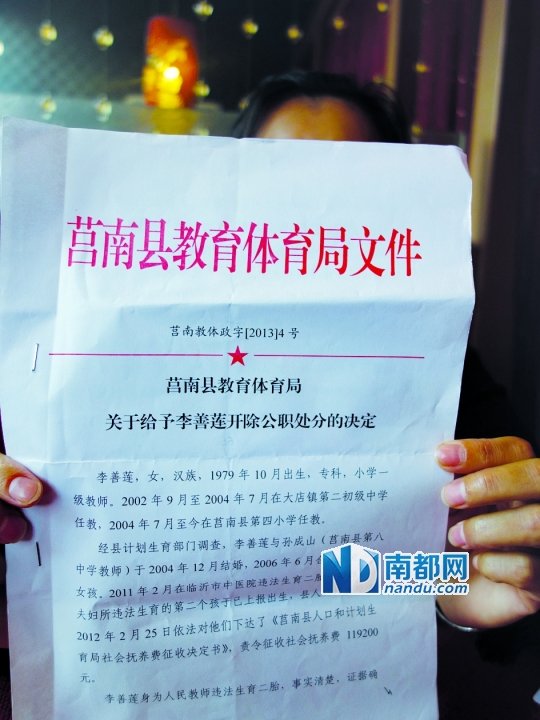 莒南县教育体育局文件
莒南教体政字[2013]4号
莒南县教育体育局
关于给予李善莲开除公职处分的决定
李善莲，女，汉族，1979年10月出生，专科，小学一
级教师。2002年9月至2004年7月在大店镇第二初级中学
任教，2004年7月至今在莒南县第四小学任教。
经县计划生育部门调查，李善莲与孙成山（莒南县第八
中学教师）于2004年12月结婚，2006年6月
女孩，2011年2月在临沂市中医院违法生育二胎
夫妇所违法生育的第二个孩子已上报出生，县人
2012年2月25日依法对他们下达了《莒南县人口和计划生
育局社会抚养费征收决定书》，责令征收社会抚养费119200
元。
李善莲身为人民教师违法生育二胎，事实清楚，证据确
ND南都网
nandu.com